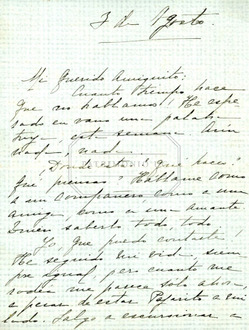 7 de Agosto.
Mi Querido Amiguito:
Cuanto tiempo hace
que no hablamos! He espe
rado en vano una palabra
tuya esta semana. Aún
nada, nada.
Donde estás? Qué haces?
Qué piensas? Háblame como
a un compañero, como a una
amiga, como a una amante
Quiero saberlo todo, todo.
Yo, que puedo contarte!
He seguido mi vida, siem
pre igual, pero cuanto me
rodea me parece solo ahora,
a pesar de estar Pajarito a mi
lado. Salgo a excursionar a